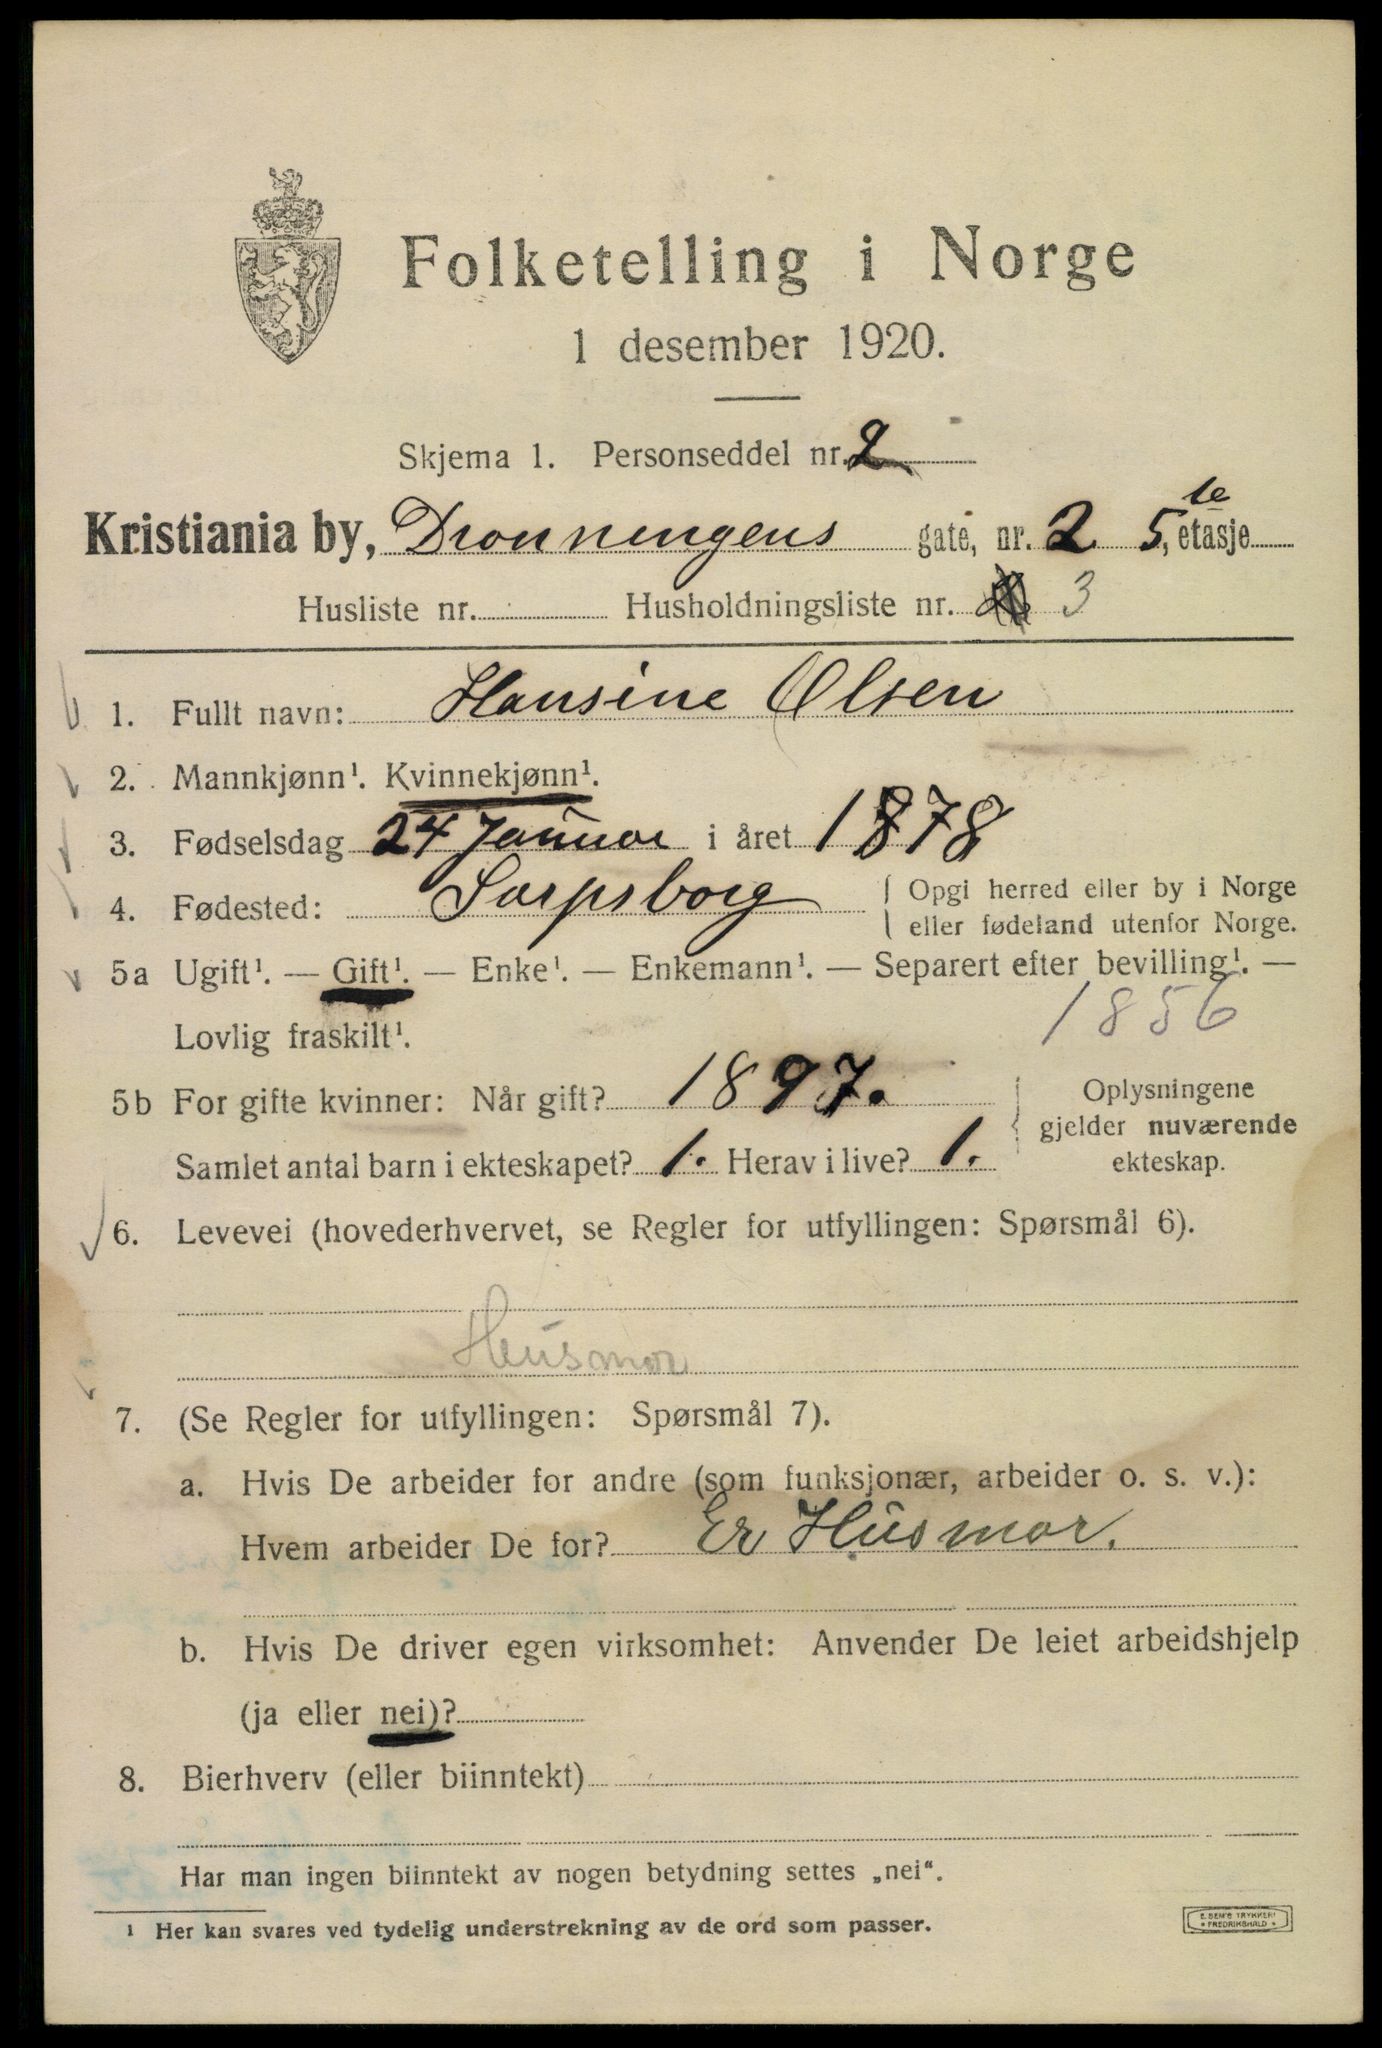 Folketelling i Norge
1 desember 1920.
Skjema 1. Personseddel nr. 2
Kristiania by, Dronningens gate, nr. 2 5te, etasje
Husliste nr. Husholdningsliste nr. 3
1. Fullt navn: Hansine Olsen
2. Mannkjønn¹. Kvinnekjønn¹.
3. Fødselsdag 24 Januar i året 1878
4. Fødested: Sarpsborg { Opgi herred eller by i Norge
eller fødeland utenfor Norge.
5a Ugift¹. — Gift¹. — Enke¹. — Enkemann¹. — Separert efter bevilling¹. —
Lovlig fraskilt¹. 1856
5b For gifte kvinner: Når gift? 1897. { Oplysningene
gjelder nuværende
Samlet antal barn i ekteskapet? 1. Herav i live? 1. ekteskap.
6. Levevei (hovederhvervet, se Regler for utfyllingen: Spørsmål 6).
Husmor
7. (Se Regler for utfyllingen: Spørsmål 7).
a. Hvis De arbeider for andre (som funksjonær, arbeider o. s. v.):
Hvem arbeider De for? Er Husmor.
b. Hvis De driver egen virksomhet: Anvender De leiet arbeidshjelp
(ja eller nei)?
8. Bierhverv (eller biinntekt)
Har man ingen biinntekt av nogen betydning settes „nei“.
¹ Her kan svares ved tydelig understrekning av de ord som passer.
E. SEM'S TRYKKERI
FREDRIKSHALD